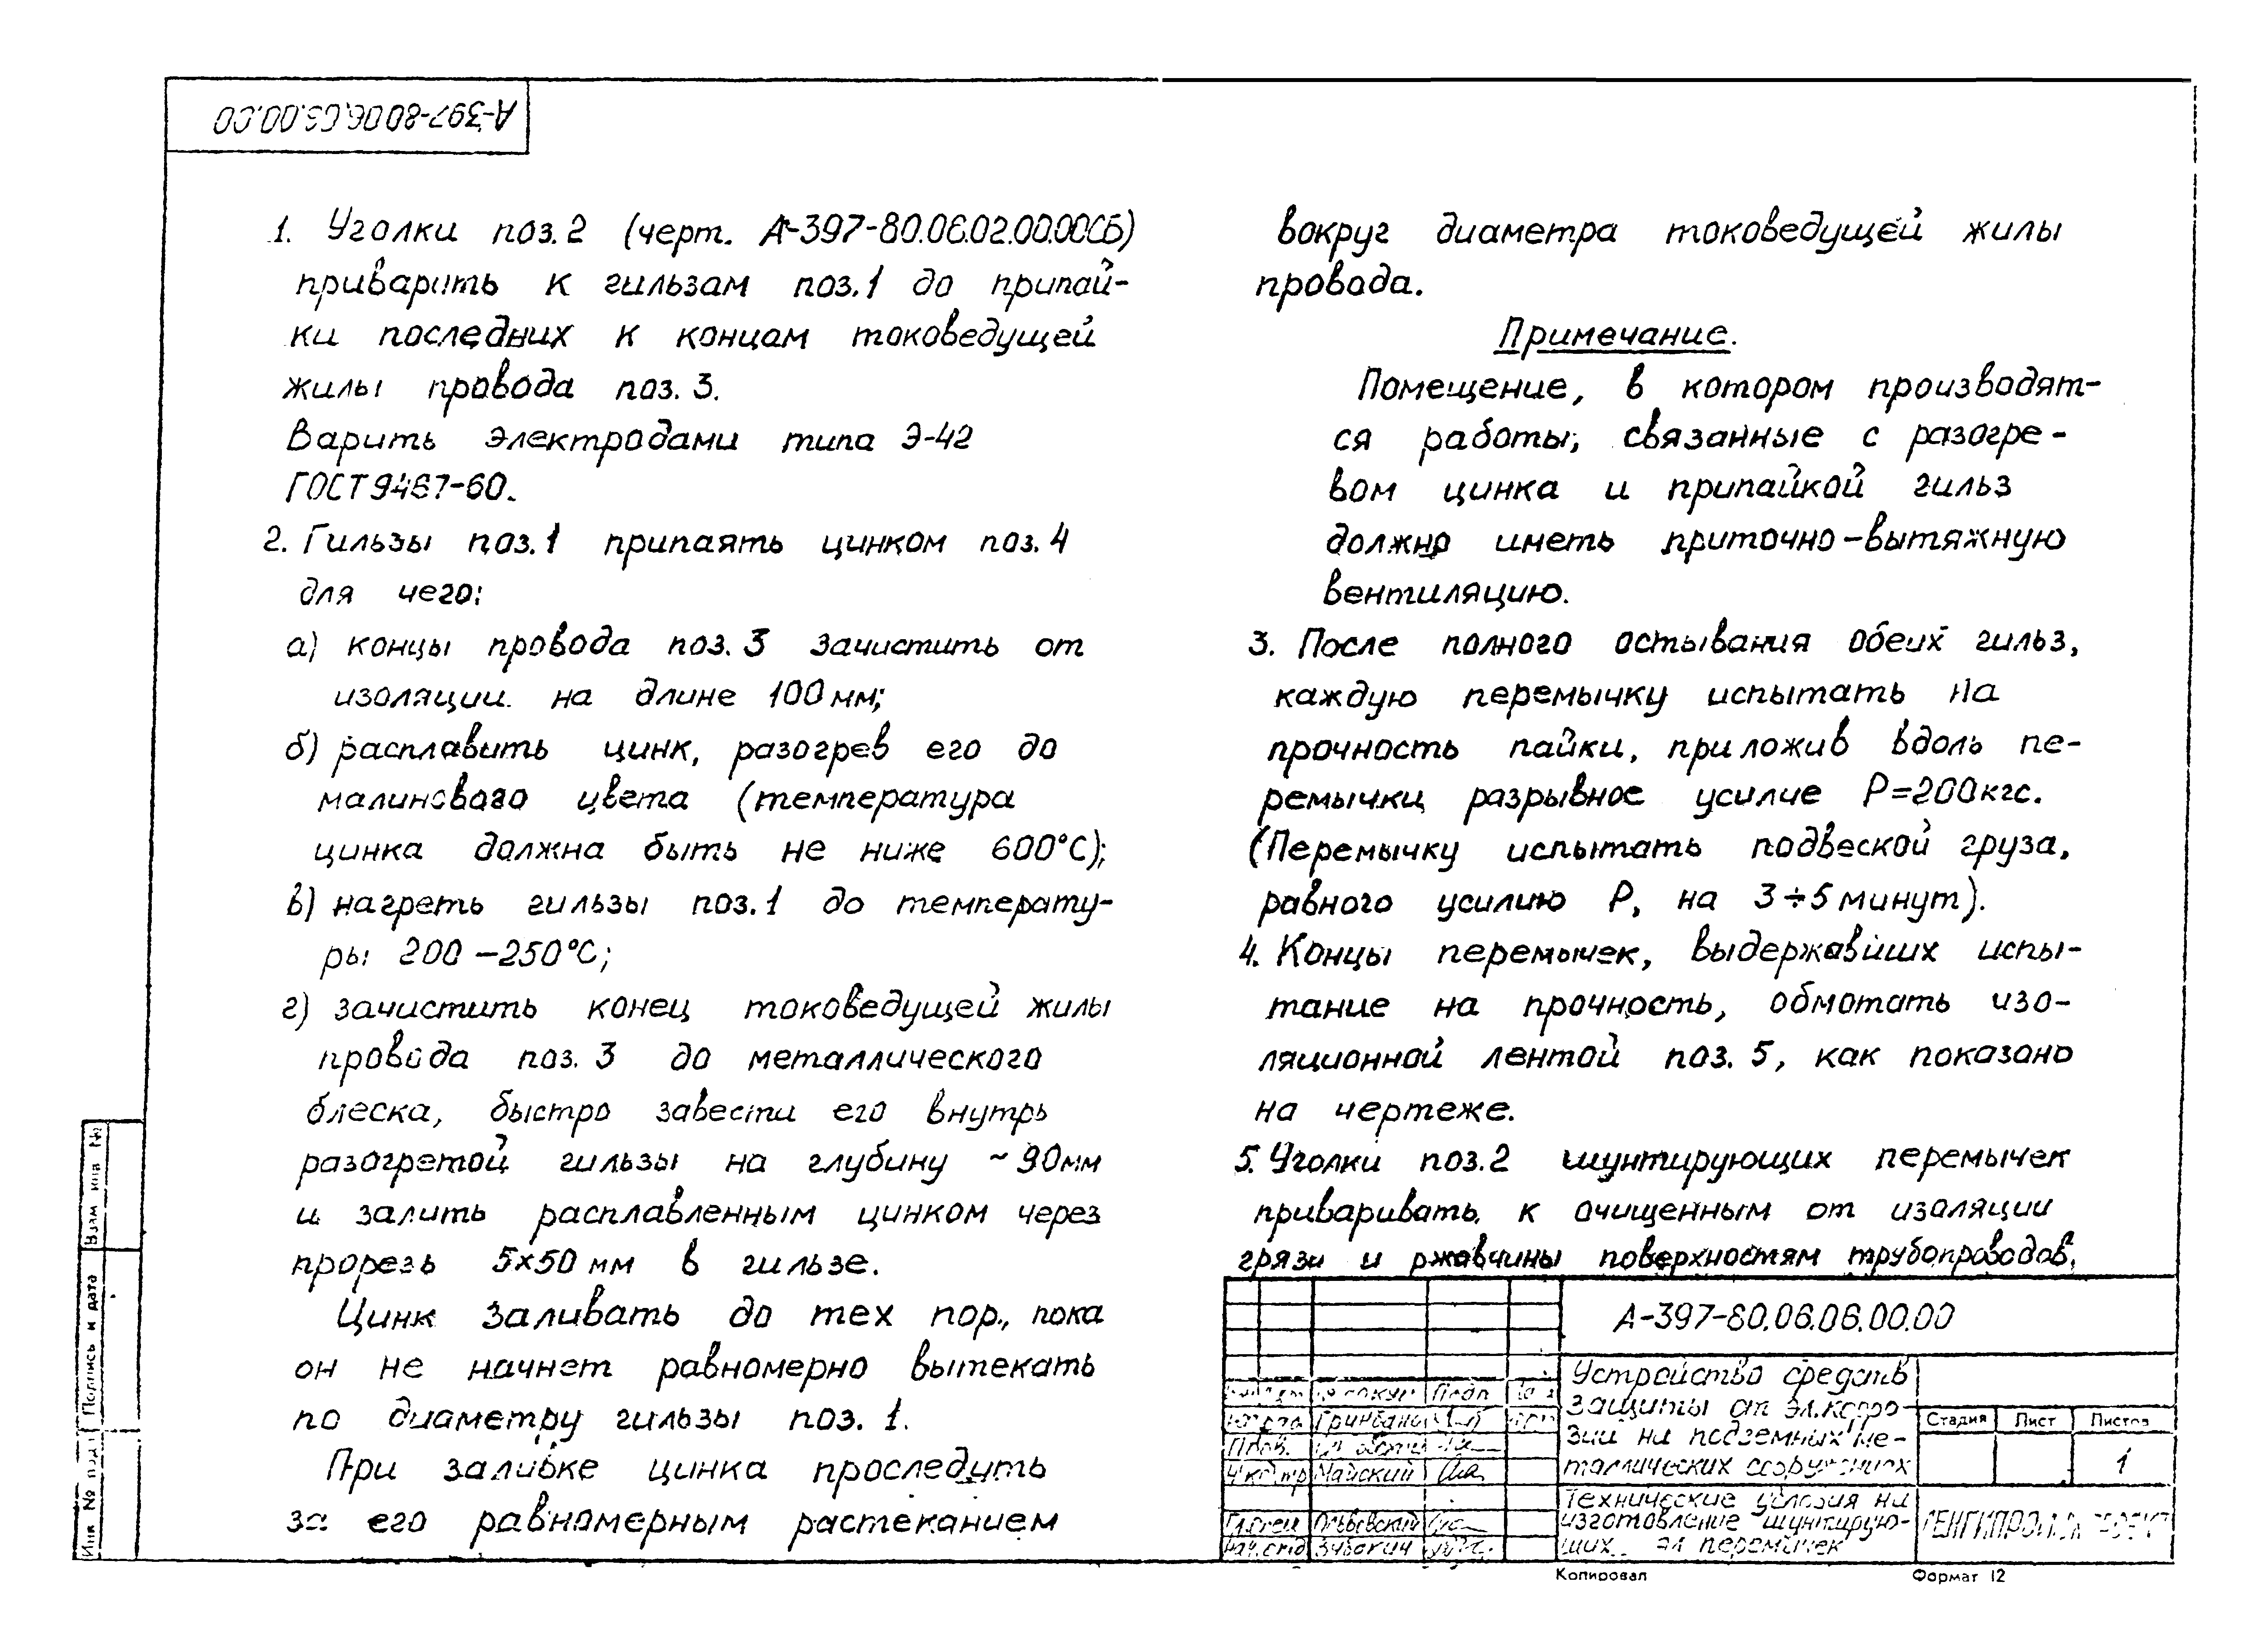 А-397-80.06.06.00.00
1. Уголки поз.2 (черт. А-397-80.06.02.00.00СБ)
приварить к гильзам поз.1 до припай-
ки последних к концам токоведущей
жилы провода поз. 3.
Варить электродами типа Э-42
ГОСТ 9467-60.
2. Гильзы поз.1 припаять цинком поз. 4
для чего:
а) концы провода поз. 3 зачистить от
изоляции на длине 100 мм;
б) расплавить цинк, разогрев его до
малинового цвета (температура
цинка должна быть не ниже 600°С);
в) нагреть гильзы поз.1 до температу-
ры 200-250°С;
г) зачистить конец токоведущей жилы
провода поз. 3 до металлического
блеска, быстро завести его внутрь
разогретой гильзы на глубину ~90мм
и залить расплавленным цинком через
прорезь 5х50 мм в гильзе.
Цинк заливать до тех пор, пока
он не начнет равномерно вытекать
по диаметру гильзы поз. 1.
При заливке цинка проследить
за его равномерным растеканием
вокруг диаметра токоведущей жилы
провода.
Примечание.
Помещение, в котором производят-
ся работы, связанные с разогре-
вом цинка и припайкой гильз
должно иметь приточно-вытяжную
вентиляцию.
3. После полного остывания обеих гильз,
каждую перемычку испытать на
прочность пайки, приложив вдоль пе-
ремычки разрывное усилие Р=200кгс.
(Перемычку испытать подвеской груза,
равного усилию Р, на 3÷5 минут).
4. Концы перемычек, выдержавших испы-
тание на прочность, обмотать изо-
ляционной лентой поз. 5, как показано
на чертеже.
5. Уголки поз.2 шунтирующих перемычек
приваривать к очищенным от изоляции
грязи и ржавчины поверхностям трубопроводов.
А-397-80.06.06.00.00
Устройство средств
защиты от эл.корро-
зии на подземных ме-
таллических сооружениях
Стадия Лист Листов
1
Технические условия на
изготовление шунтирую-
щих эл перемычек
Пров.
Н.контр Майский
Гл.спец Львовский
Нач.отд
Взам инв №
Подпись и дата
Инв № подл
Копировал Формат 12